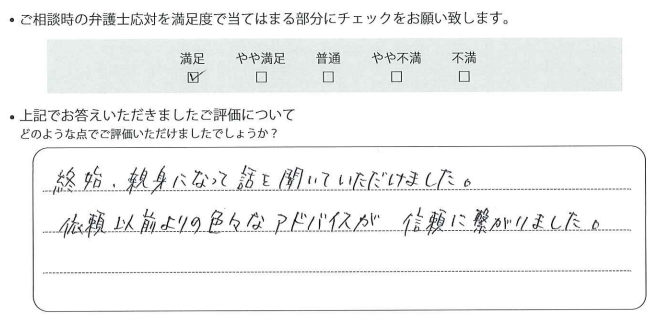 • ご相談時の弁護士応対を満足度で当てはまる部分にチェックをお願い致します。
満足 やや満足 普通 やや不満 不満
☑ □ □ □ □
• 上記でお答えいただきましたご評価について
どのような点でご評価いただけましたでしょうか?
終始、親身になって話を聞いていただけました。
依頼以前よりの色々なアドバイスが 信頼に繋がりました。